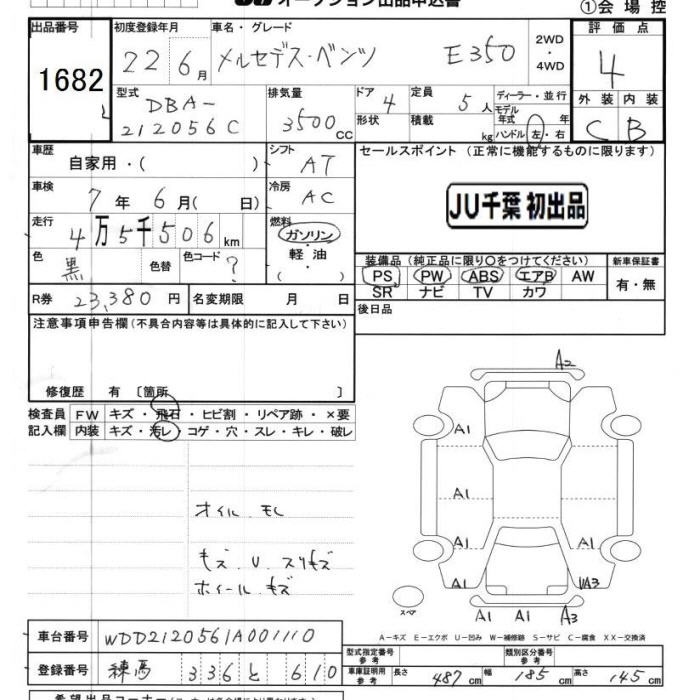 オークション出品申込書
①会場控
出品番号
1682
初度登録年月
22 6月
車名・グレード
メルセデス・ベンツ E350
2WD
・
4WD
評価点
4
外装 内装
C B
型式
DBA-
212056C
排気量
3500cc
ドア 4
形状
定員 5人
積載 kg
ディーラー・並行
モデル
年式 年
ハンドル 左・右
車歴
自家用・( )
シフト
AT
車検
7年 6月( 日)
冷房
AC
走行
4万5千506km
燃料
ガソリン
軽油
( )
色
黒
色替
色コード
?
R券 23,380円
名変期限 月 日
セールスポイント (正常に機能するものに限ります)
JU千葉 初出品
装備品 (純正品に限り○をつけてください)
新車保証書
PS PW ABS エアB AW
有・無
SR ナビ TV カワ
後日品
注意事項申告欄(不具合内容等は具体的に記入して下さい)
修復歴 有 〔箇所 〕
検査員
記入欄
FW キズ・飛石・ヒビ割・リペア跡・×要
内装 キズ・汚レ・コゲ・穴・スレ・キレ・破レ
オイル モレ
キズ U スリキズ
ホイール キズ
A2
A1
A1
A1 A1
A1 UA3
A1 A1 A3
スペア
A－キズ E－エクボ U－凹み W－補修跡 S－サビ C－腐食 XX－交換済
車台番号 WDD2120561A001110
登録番号 練馬 336 と 610
型式指定番号
参考
類別区分番号
参考
車庫証明用
参考
長さ 487cm 幅 185cm 高さ 145cm
希望出品コーナー